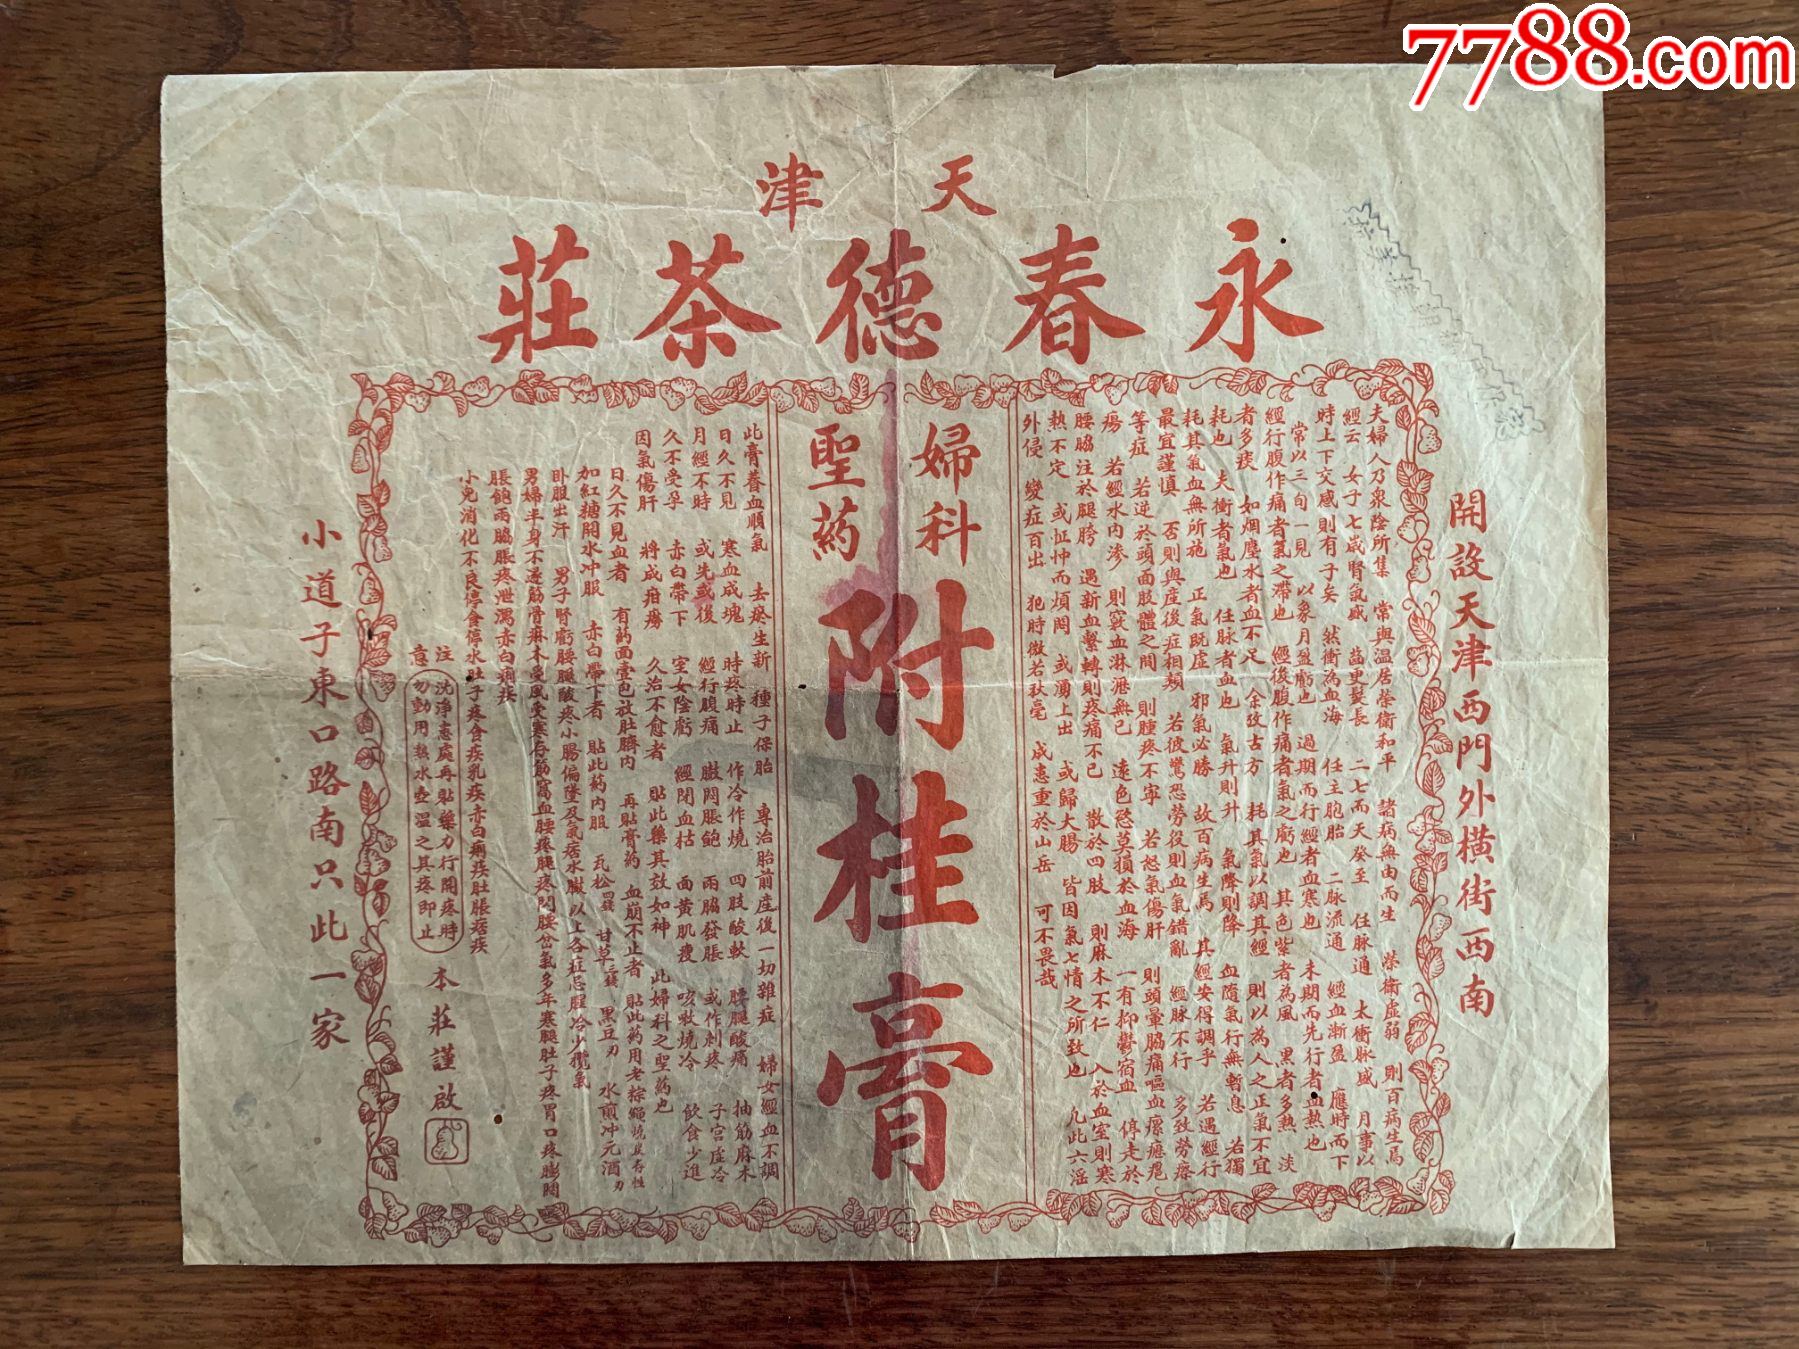 7788.com
天津
永春德茶莊
開設天津西門外橫街西南
夫婦人乃眾陰所集 常與温居榮衛和平 諸病無由而生 榮衛虛弱 則百病生焉
經云 女子七歲腎氣盛 齒更髮長 二七而天癸至 任脉通 太衝脉盛 月事以
時上下交感則有子矣 然衝為血海 任主胞胎 二脉流通 經血漸盈 應時而下
常以三旬一見 以象月盈虧也 過期而行經者血寒也 未期而先行者血熱也
經行腹作痛者氣之滯也 經後腹作痛者氣之虧也 其色紫者為風 黑者多熱 淡
者多痰 如烟塵水者血不足 余攷古方 耗其氣以調其經 則以為人之正氣不宜
耗也 夫衝者氣也 任脉者血也 氣升則升 氣降則降 血隨氣行無暫息 若獨
耗其氣血無所施 正氣既虛 邪氣必勝 故百病生焉 其經安得調乎 若遇經行
最宜謹慎 否則與產後症相類 若彼驚恐勞役則血氣錯亂 經脉不行 多致勞瘵
等症 若逆於頭面肢體之間 則腫疼不寧 若怒氣傷肝 則頭暈脇痛嘔血瘰癧
瘍 若經水内滲 則竅血淋漉無已 遠色慾莫損於血海 一有抑鬱宿血 停走於
腰脇注於腿胯 遇新血繫轉則疼痛不已 散於四肢 則麻木不仁 入於血室則寒
熱不定 或怔忡而煩悶 或湧上出 或歸大腸 皆因氣七情之所致也 凡此六滛
外侵 變症百出 犯時微若秋毫 成恙重於山岳 可不畏哉
婦科
聖药
附桂膏
此膏養血順氣 去瘀生新 種子保胎 專治胎前產後一切雜症 婦女經血不調
日久不見 寒血成塊 時疼時止 作冷作燒 四肢酸軟 腰腿酸痛 抽筋麻木
月經不時 或先或後 經行腹痛 臌悶脹飽 兩脇發脹 或作刺疼 子宫虛冷
久不受孕 赤白帶下 室女陰虧 經閉血枯 面黄肌瘦 咳嗽燒冷 飲食少進
因氣傷肝 將成疳癆 久治不愈者 貼此藥其效如神 此婦科之聖药也
日久不見血者 有药面壹包放肚臍内 再貼膏药 血崩不止者 貼此药用老棕繩燒炭存性
加紅糖開水冲服 赤白帶下者 貼此药内服 瓦松四錢 甘草三錢 黑豆刃 水煎冲元酒刃
卧服出汗 男子腎虧腰腿酸疼小腸偏墜及氣痞水臌以上各症忌腥冷少攬氣
男婦半身不遂筋骨麻木受風受寒存筋窩血腰疼腿疼閃腰岔氣多年寒腿肚子疼胃口疼膨悶
脹飽兩脇脹疼泄瀉赤白痢疾
小兒消化不良停食停水肚子疼食疾乳疾赤白痢疾肚脹痞疾
注意
洗净患處再貼藥力行開疼時
勿動用熱水壺溫之其疼即止
本莊謹啟
小道子東口路南只此一家